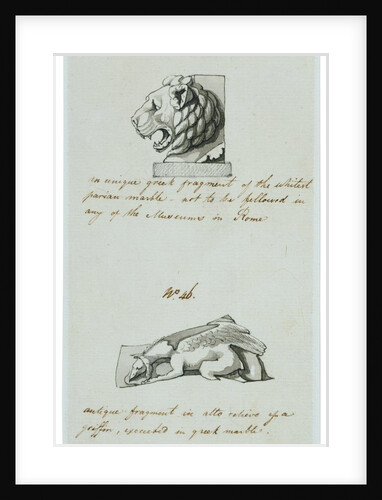 an unique greek fragment of the whitest
parian marble - not to be fellowed in
any of the Museums in Rome
No. 46.
antique fragment in alto relievo of a
griffon, executed in greek marble.